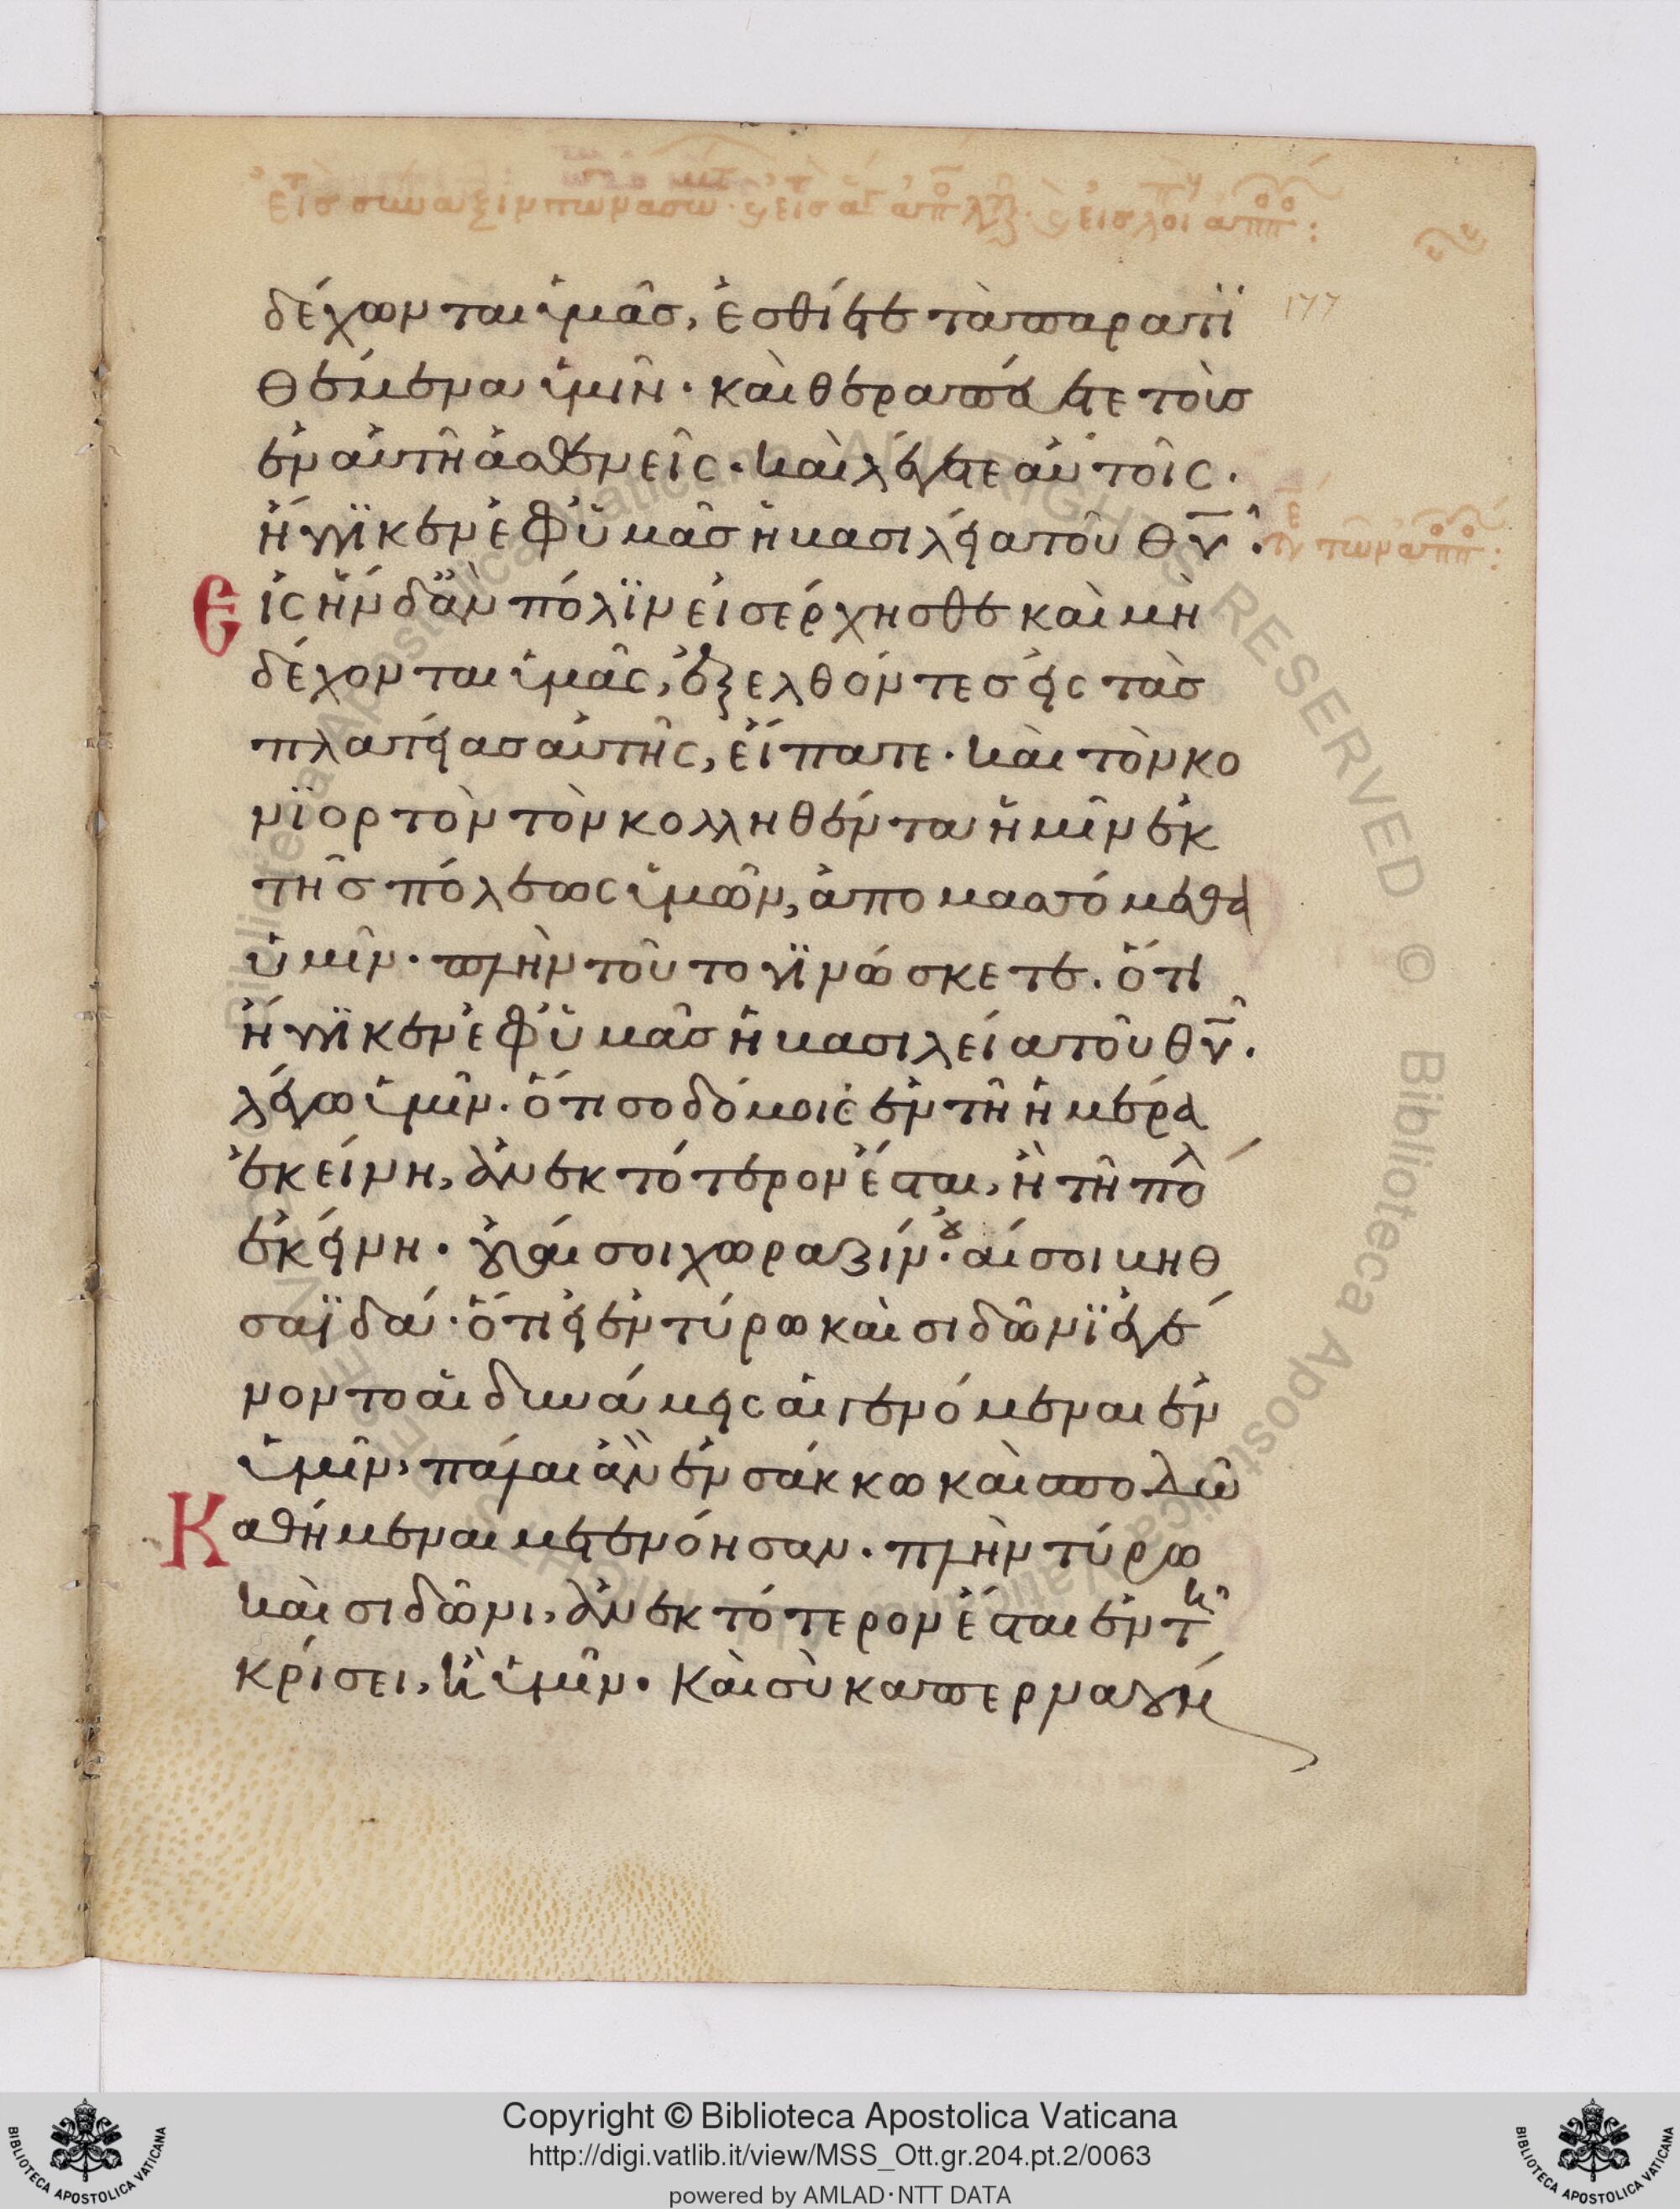 177
δέχωνται ὑμᾶσ, ἐσθίετε τὰ παρατϊ
θέμενα ὑμῖν· καὶ θεραπεύετε τοὺσ
ἐν αὐτῆ ἀσθενεῖς· καὶ λέγετε αὐτοῖς·
ἤγγϊκεν ἐφ ὑμᾶσ ἡ βασιλεία τοῦ θυ·
Εἰς ἣν δ ἂν πόλϊν εἰσέρχησθε καὶ μὴ
δέχονται ὑμᾶς, ἐξελθόντεσ εἰς τὰσ
πλατείασ αὐτῆς, εἴπατε· καὶ τὸν κο
νϊορτὸν τὸν κολληθέντα ἡμῖν ἐκ
τῆσ πόλεως ὑμῶν, ἀπομασσόμεθα
ὑμῖν· πλὴν τοῦτο γϊνώσκετε· ὅτι
ἤγγϊκεν ἐφ ὑμᾶσ ἡ βασιλεία τοῦ θυ·
λέγω ὑμῖν· ὅτι σοδόμοις ἐν τῆ ἡμέρα
ἐκείνη, ἀνεκτότερον ἔσται, ἢ τῆ πολ
ἐκείνη· οὐαί σοι χωραζίν· οὐαί σοι βηθ
σαϊδά· ὅτι εἰ ἐν τύρω καὶ σιδῶνϊ ἐγέ
νοντο αἱ δυνάμεις αἱ γενόμεναι ἐν
ὑμῖν, πάλαι ἂν ἐν σάκκω καὶ σποδῶ
Καθήμεναι μετενόησαν· πλὴν τύρω
καὶ σιδῶνι, ἀνεκτότερον ἔσται ἐν τῆ
κρίσει, ἢ ὑμῖν· Καὶ σὺ καπερναούμ
Copyright © Biblioteca Apostolica Vaticana
http://digi.vatlib.it/view/MSS_Ott.gr.204.pt.2/0063
powered by AMLAD·NTT DATA
BIBLIOTECA APOSTOLICA VATICANA
BIBLIOTECA APOSTOLICA VATICANA